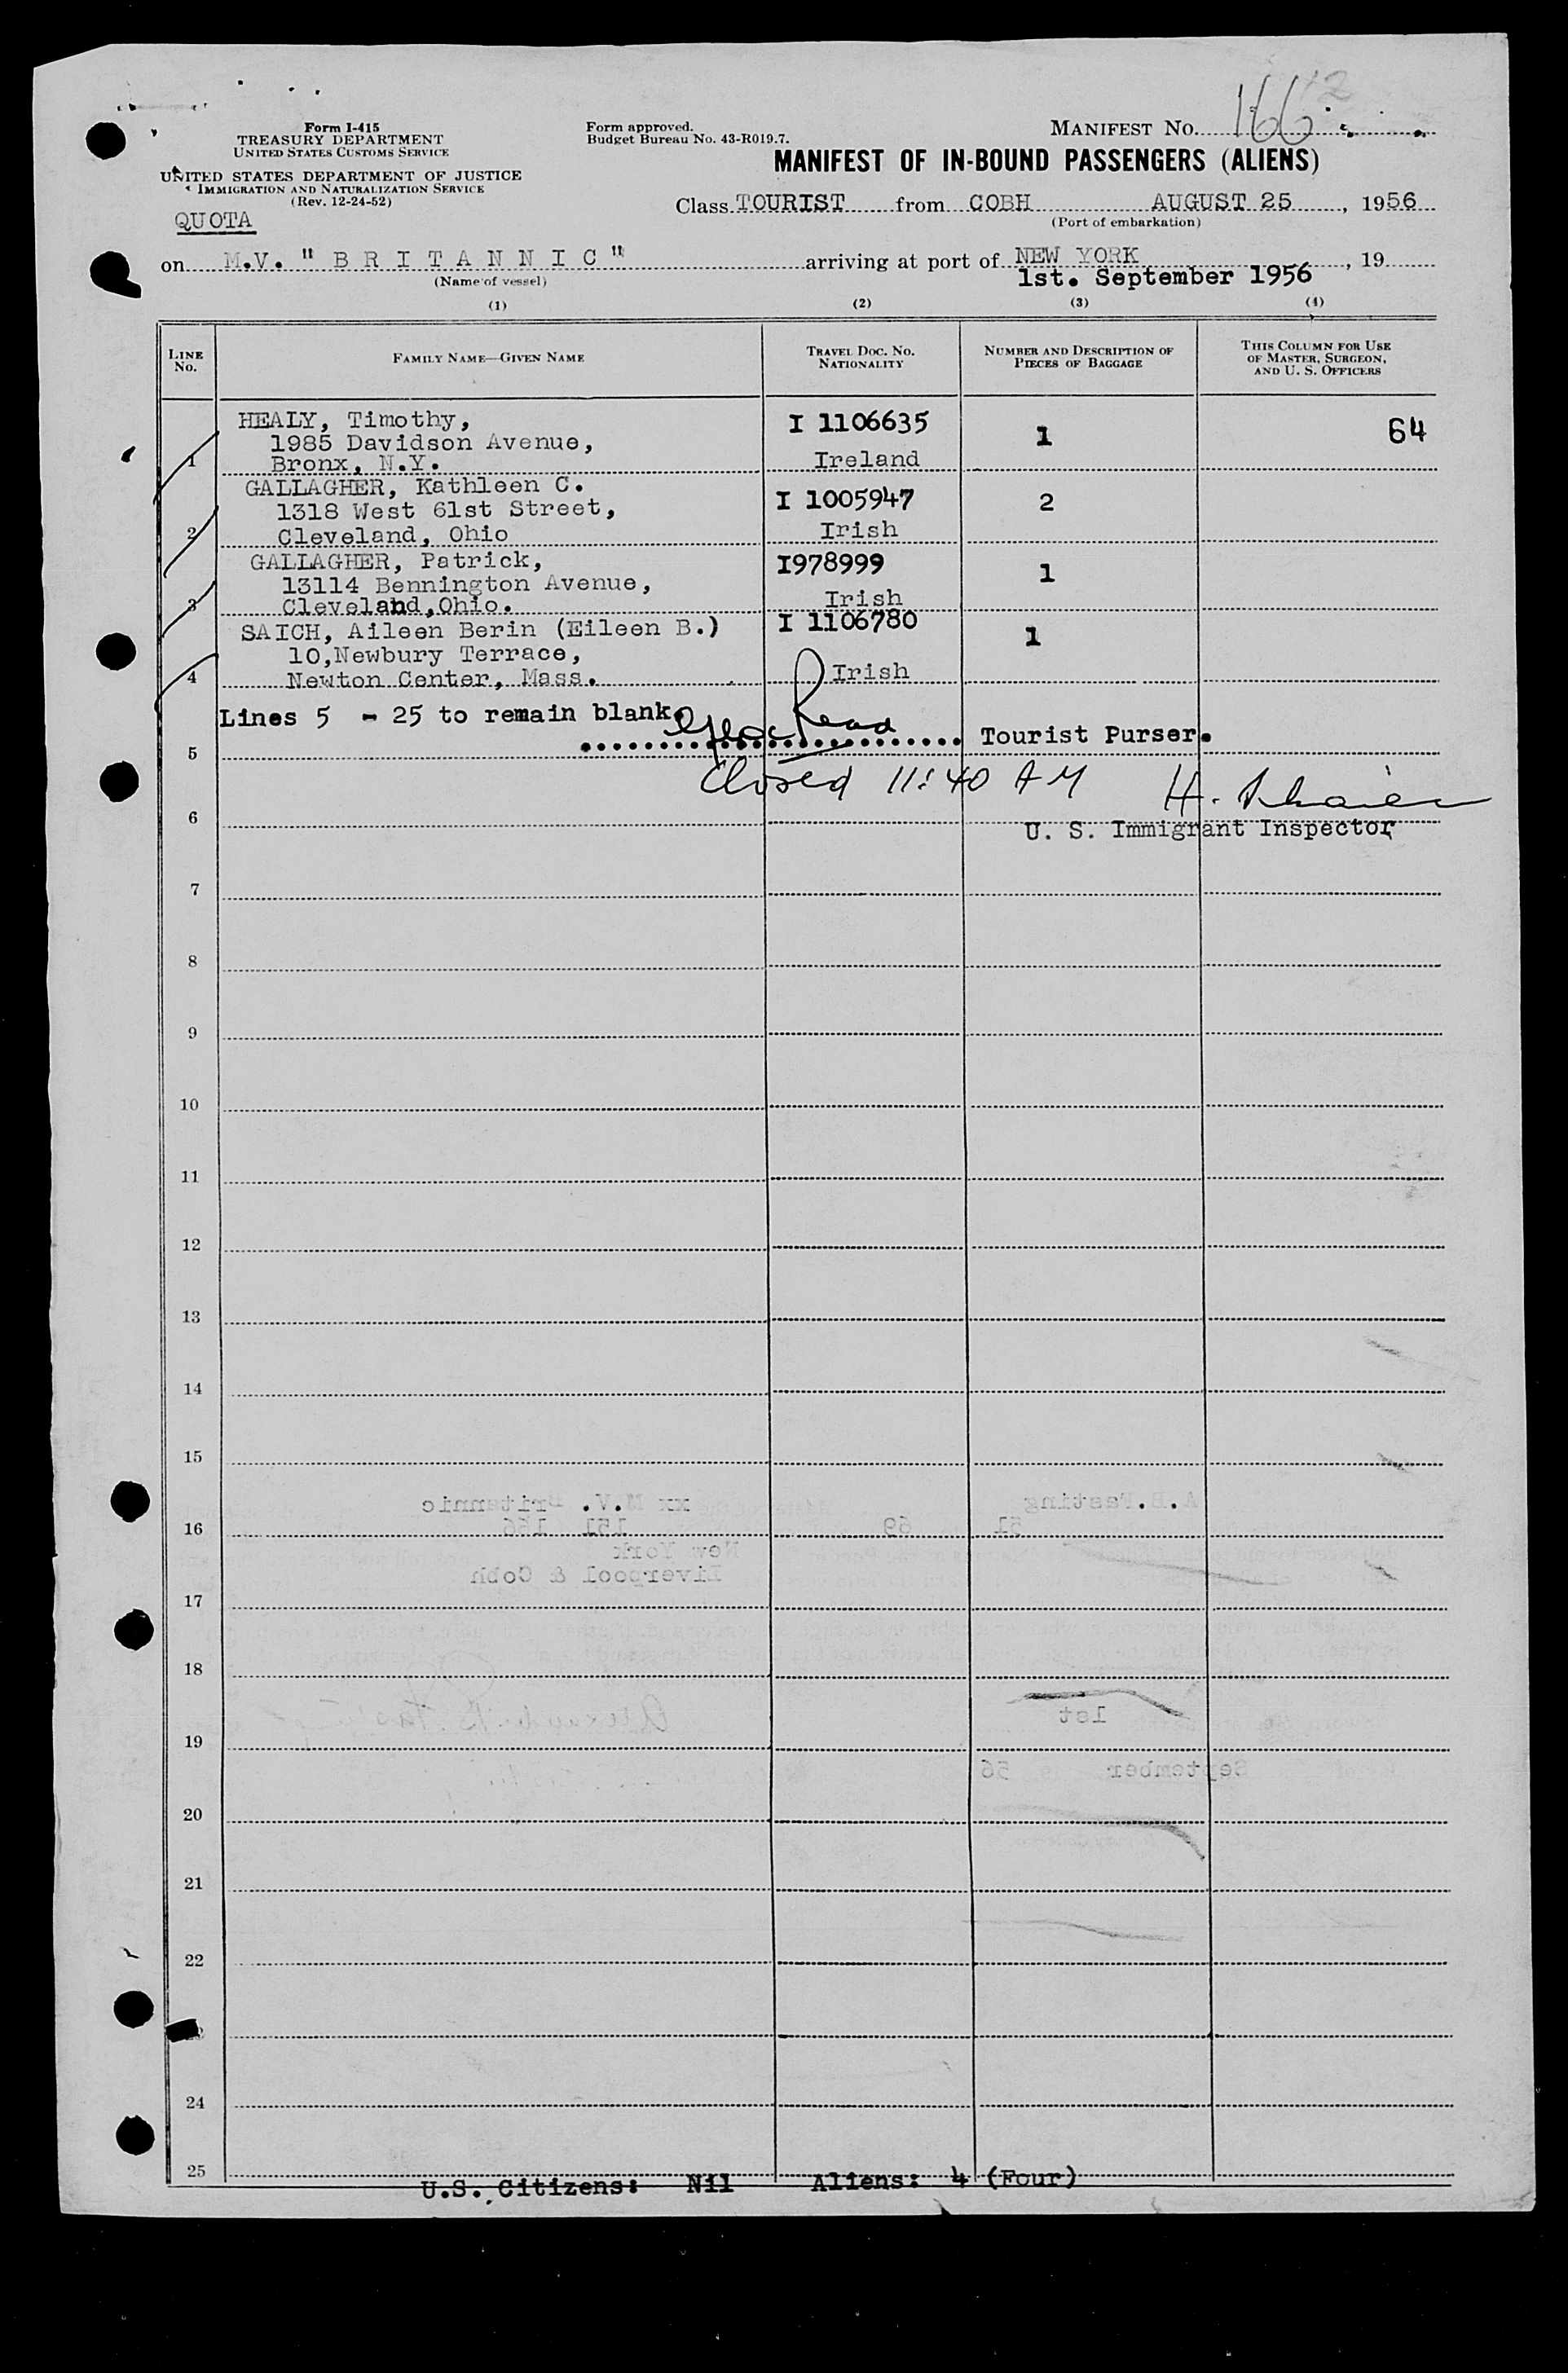 166
Form I-415
TREASURY DEPARTMENT
UNITED STATES CUSTOMS SERVICE
Form approved.
Budget Bureau No. 43-R019.7.
MANIFEST NO.
MANIFEST OF IN-BOUND PASSENGERS (ALIENS)
UNITED STATES DEPARTMENT OF JUSTICE
IMMIGRATION AND NATURALIZATION SERVICE
(Rev. 12-24-52)
QUOTA
Class TOURIST from COBH AUGUST 25, 1956
(Port of embarkation)
on M.V. " B R I T A N N I C " arriving at port of NEW YORK, 19
(Name of vessel)
1st. September 1956
(1) (2) (3) (4)
LINE No. FAMILY NAME—GIVEN NAME TRAVEL DOC. NO. NATIONALITY NUMBER AND DESCRIPTION OF PIECES OF BAGGAGE THIS COLUMN FOR USE OF MASTER, SURGEON, AND U. S. OFFICERS
HEALY, Timothy, I 1106635 1 64
1985 Davidson Avenue,
1 Bronx, N.Y. Ireland
GALLAGHER, Kathleen C. I 1005947 2
1318 West 61st Street,
2 Cleveland, Ohio Irish
GALLAGHER, Patrick, I978999 1
13114 Bennington Avenue,
3 Cleveland,Ohio. Irish
SAICH, Aileen Berin (Eileen B.) I 1106780 1
10,Newbury Terrace,
4 Newton Center, Mass. Irish
Lines 5 - 25 to remain blank.
5 Read Tourist Purser.
Closed 11:40 AM H.
6 U. S. Immigrant Inspector
7
8
9
10
11
12
13
14
15
xx M.V. Britannic A.B.Fasting
16 151 156 69 51
New York
Liverpool & Cobh
17
18
1st
19
September 56
20
21
22
24
25
U.S. Citizens: Nil Aliens: 4 (Four)